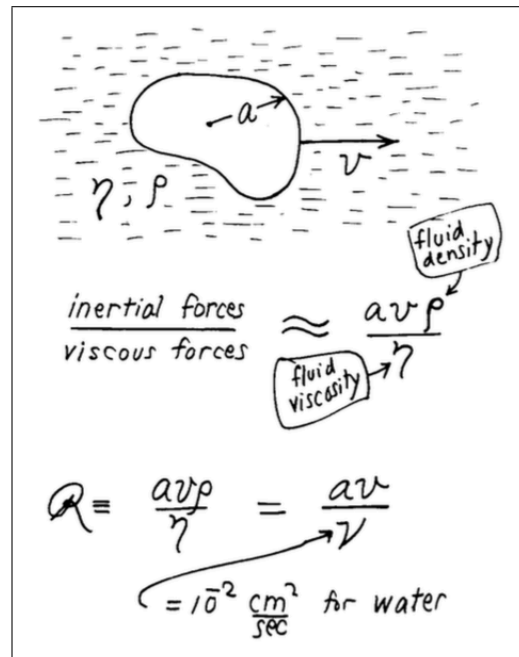 a
v
η, ρ
fluid density
inertial forces / viscous forces ≈ avρ / η
fluid viscosity
R ≡ avρ / η = av / ν
= 10⁻² cm² / sec for water